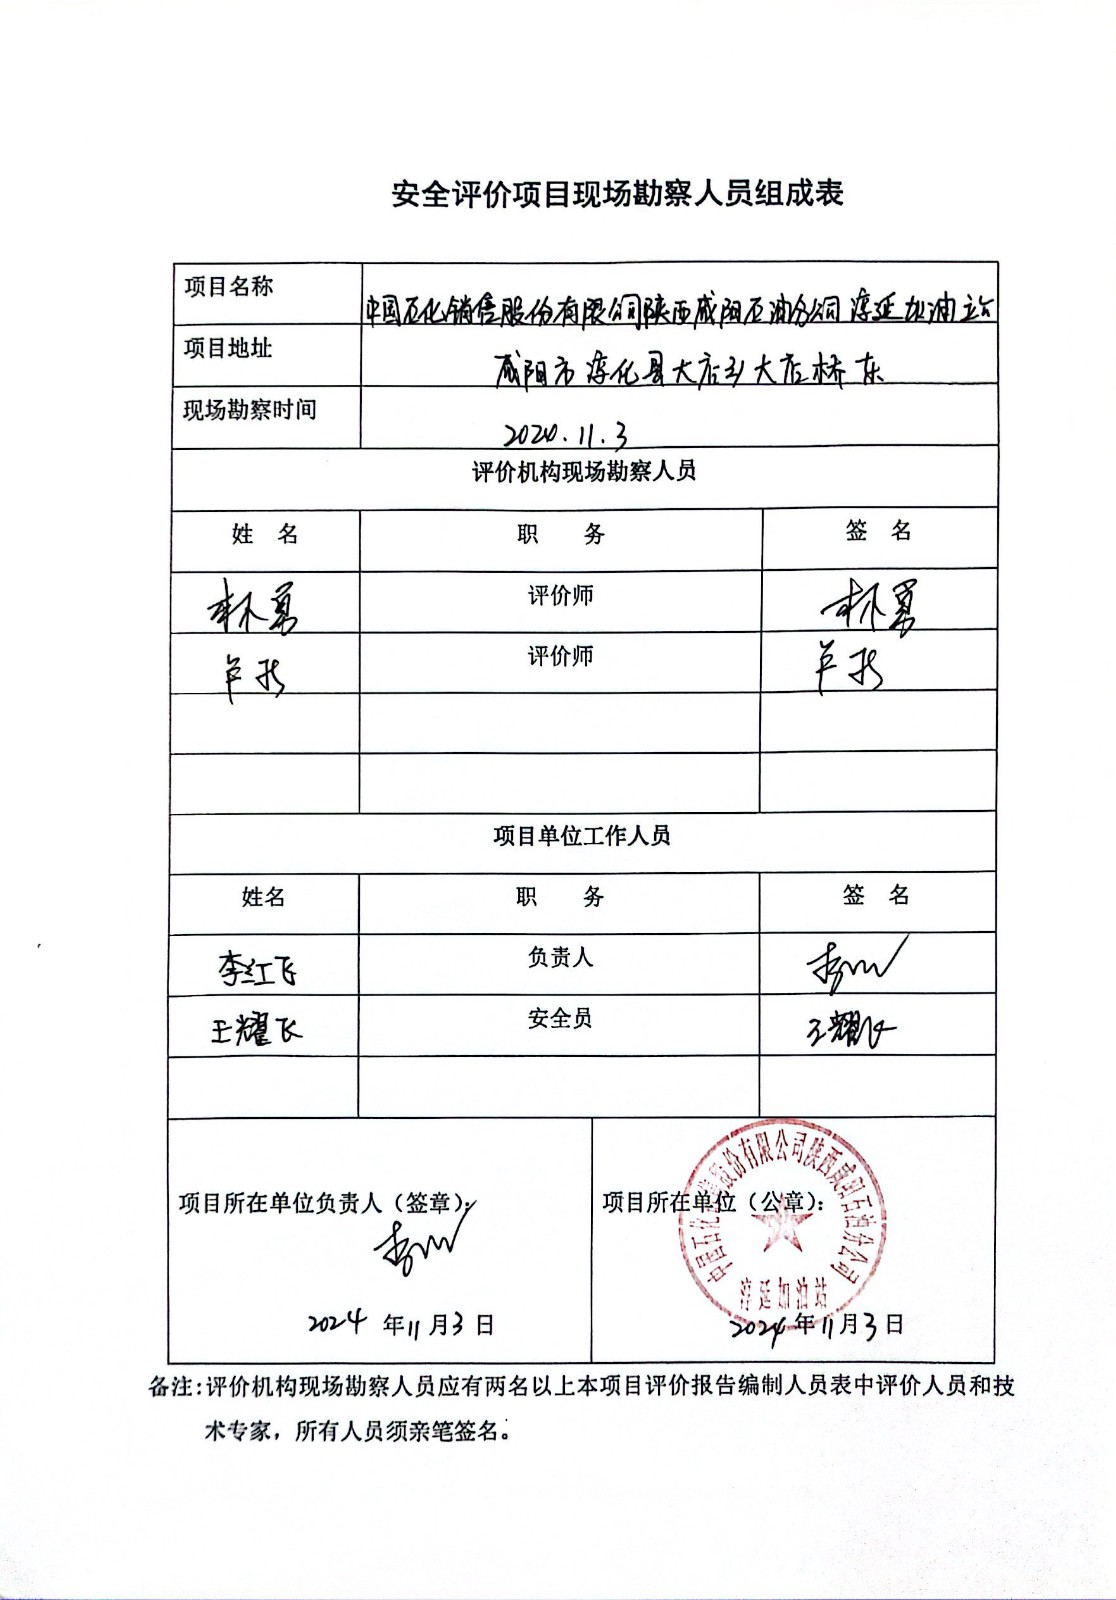 安全评价项目现场勘察人员组成表
项目名称 中国石化销售股份有限公司陕西咸阳石油分公司淳延加油站
项目地址 咸阳市淳化县大店乡大店桥东
现场勘察时间 2024.11.3
评价机构现场勘察人员
姓 名 职 务 签 名
林勇 评价师 林勇
评价师
项目单位工作人员
姓名 职 务 签 名
李红飞 负责人
王耀飞 安全员 王耀飞
中国石化销售股份有限公司陕西咸阳石油分公司
项目所在单位负责人（签章）： 项目所在单位（公章）：
淳延加油站
2024 年 11 月 3 日 2024 年 11 月 3 日
备注：评价机构现场勘察人员应有两名以上本项目评价报告编制人员表中评价人员和技
术专家，所有人员须亲笔签名。